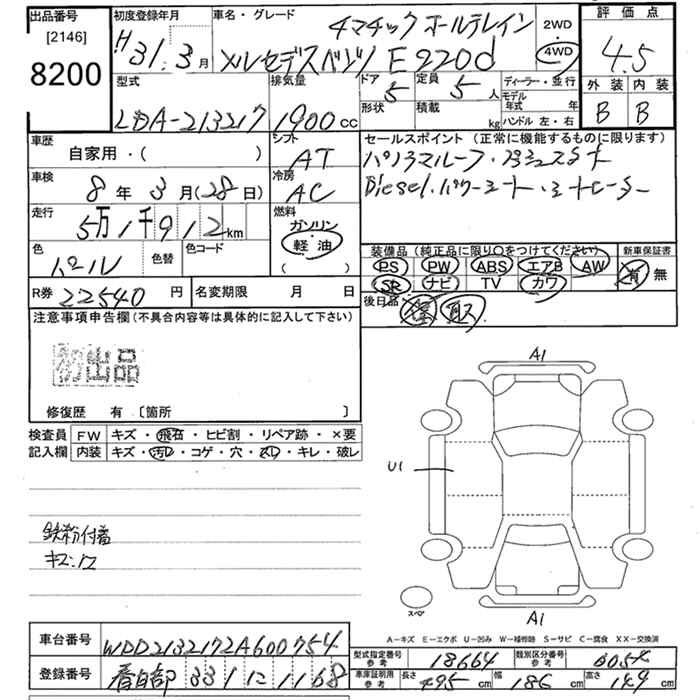 出品番号
[2146]
8200
初度登録年月
H31.3月
車名・グレード
4マチック オールテレイン
メルセデスベンツ E220d
2WD
4WD
評価点
4.5
外装 内装
B B
型式
LDA-213217
排気量
1900cc
ドア
5
形状
定員
5人
積載
kg
ディーラー・並行
モデル年式 年
ハンドル 左・右
車歴
自家用・( )
シフト
AT
セールスポイント(正常に機能するものに限ります)
パノラマルーフ・
Diesel・パワーシート・シートヒーター
車検
8年3月(28日)
冷房
AC
走行
5万1千912km
燃料
ガソリン
・
軽油
( )
色
パール
色替
色コード
装備品(純正品に限り○をつけてください)
PS PW ABS エアB AW
SR ナビ TV カワ
新車保証書
有 無
R券 22540円
名変期限 月 日
後日品
注意事項申告欄(不具合内容等は具体的に記入して下さい)
初出品
修復歴 有 〔箇所 〕
検査員 FW キズ・飛石・ヒビ割・リペア跡・×要
記入欄 内装 キズ・汚レ・コゲ・穴・スレ・キレ・破レ
鉄粉付着
キズ・凹
A1
U1
スペア
A1
A-キズ E-エクボ U-凹み W-補修跡 S-サビ C-腐食 XX-交換済
車台番号 WDD2132172A600754
登録番号 331 1168
型式指定番号 参考 18664
類別区分番号 参考
車庫証明用 参考 長さ 495cm 幅 186cm 高さ 149cm